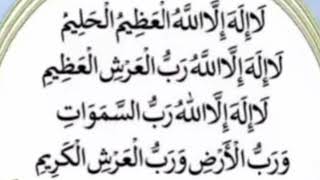 لَا إِلَهَ إِلَّا اللَّهُ الْعَظِيمُ الْحَلِيمُ
لَا إِلَهَ إِلَّا اللَّهُ رَبُّ الْعَرْشِ الْعَظِيمِ
لَا إِلَهَ إِلَّا اللهُ رَبُّ السَّمَوَاتِ
وَرَبُّ الْأَرْضِ وَرَبُّ الْعَرْشِ الْكَرِيمِ